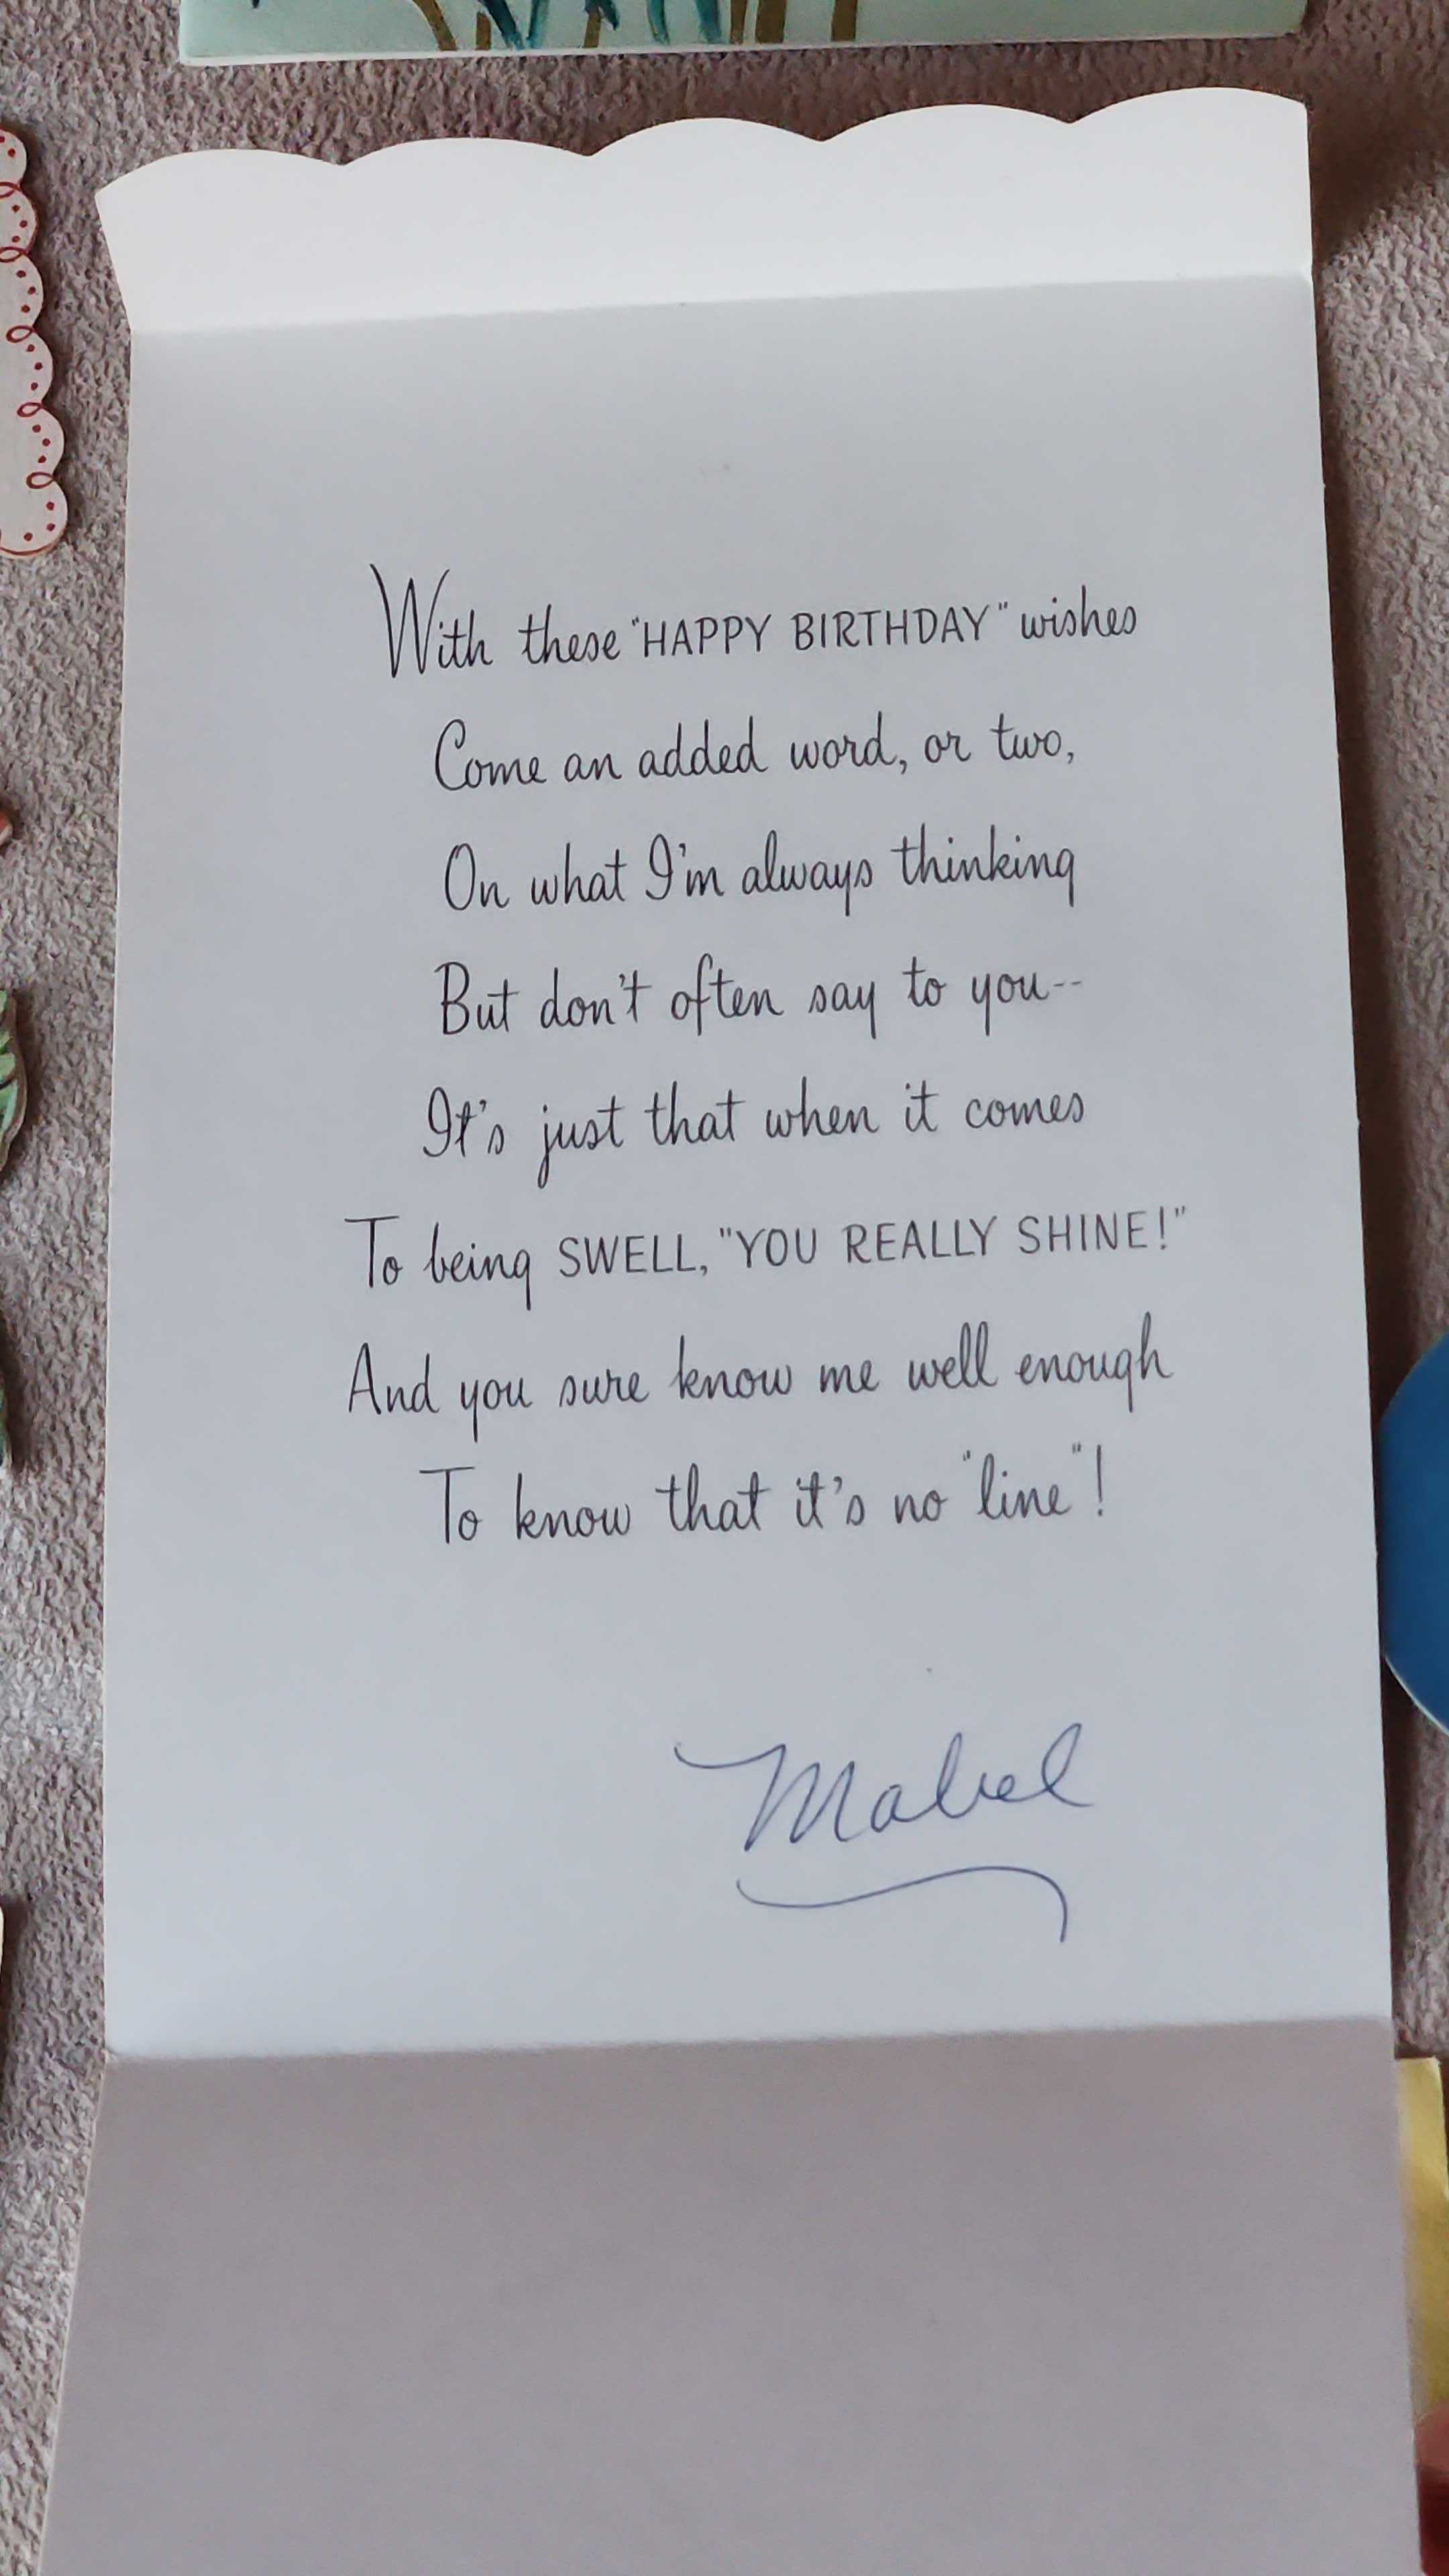 With these "HAPPY BIRTHDAY" wishes
Come an added word, or two,
On what I'm always thinking
But don't often say to you--
It's just that when it comes
To being SWELL, "YOU REALLY SHINE!"
And you sure know me well enough
To know that it's no "line"!
Mabel